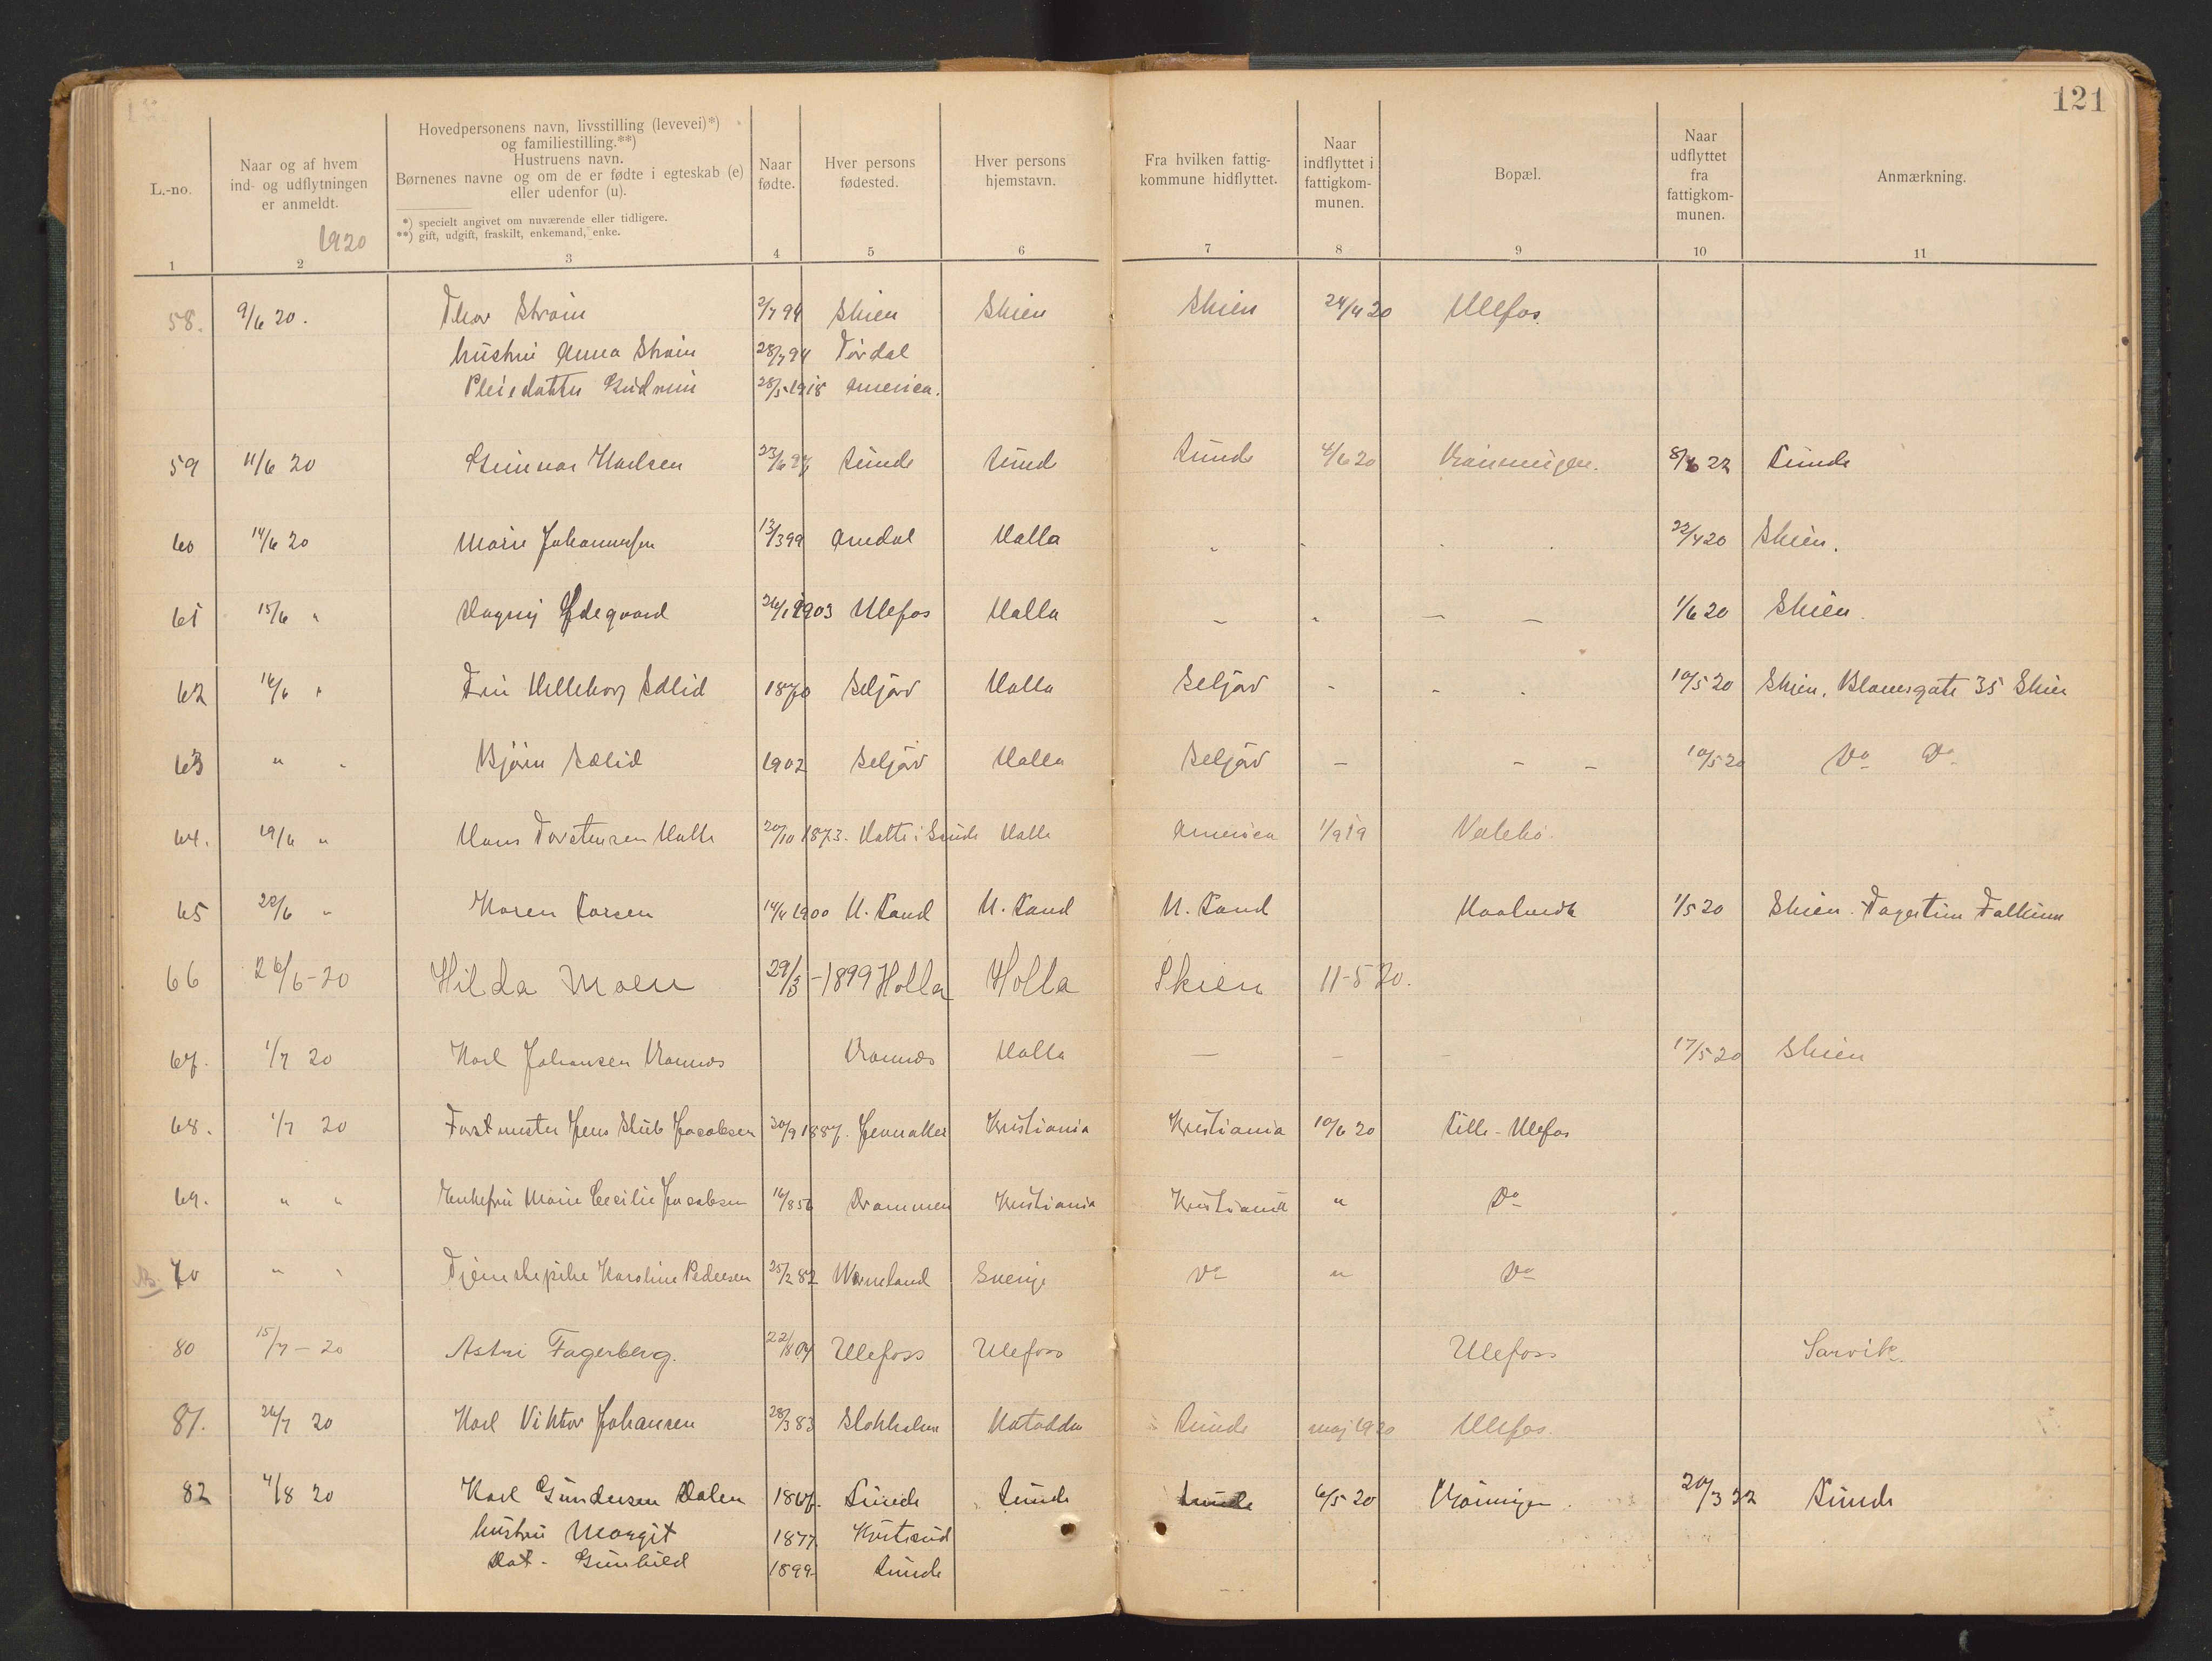 121
L.-no.
Naar og af hvem ind- og udflytningen er anmeldt.
1920
Hovedpersonens navn, livsstilling (levevei)*) og familiestilling.**)
Hustruens navn.
Børnenes navne og om de er fødte i egteskab (e) eller udenfor (u).
*) specielt angivet om nuværende eller tidligere.
**) gift, udgift, fraskilt, enkemand, enke.
Naar fødte.
Hver persons fødested.
Hver persons hjemstavn.
Fra hvilken fattigkommune hidflyttet.
Naar indflyttet i fattigkommunen.
Bopæl.
Naar udflyttet fra fattigkommunen.
Anmærkning.
1 2 3 4 5 6 7 8 9 10 11
58. 9/6 20. Thor Strøm 2/7 94 Skien Skien Skien 24/4 20 Ulefos
hustru Anna Strøm 28/7 94 Tørdal
Pleiedatter Gudrun 28/5 1918 America.
59 11/6 20 Gunnar Karlsen 23/6 97 Lunde Lunde Lunde 4/6 20 8/6 22 Lunde
60 14/6 20 Marie Johannesen 13/3 99 Holla 22/4 20 Skien.
61 15/6 " Dagny Ødegaard 26/1 1903 Ulefos Holla - - - - 1/6 20 Skien.
62 16/6 " Sølid 1870 Seljord Holla Seljord 10/5 20 Skien. 35 Skien
63 " " Bjørn Sølid 1902 Seljord Holla Seljord - - - 10/5 20 Do Do
64. 19/6 " Hans Torstensen Hatte 20/10 1873. Hatte i Lunde Holla America 1/9 19 Valebø.
65 22/6 " Karen Larsen 14/4 1900 H. Sand H. Sand H. Sand 1/5 20 Skien. Falkum
66 26/6-20 Hilda Moen 29/3-1899 Holla Holla Skien 11-5 20.
67. 1/7 20 Karl Johansen Vrannes Vrannes Holla - - - 17/5 20 Skien
68. 1/7 20 Forstmester Jens Stub Jacobsen 30/9 1887. Jevnaker Kristiania Kristiania 10/6 20 Lille-Ulefos
69. " " Enkefru Marie Cecilie Jacobsen 16/8 56 Drammen Kristiania Kristiania " Do
70 " " Tjenestepike Karoline Pedersen 25/2 82 Wermland Sverige Do " Do
80 15/7-20 Astri Fagerberg. 22/8 04 Ulefoss Ulefoss Ulefoss Larvik.
81. 26/7 20 Karl Viktor Johansen 28/3 83 Stokholm Notodden Lunde maj 1920 Ulefos.
82 4/8 20 Karl Gundersen Dalen 1867. Lunde Lunde Lunde 6/5 20 20/3 22 Lunde
hustru Margit 1877.
Dat. Gunhild 1899 Lunde